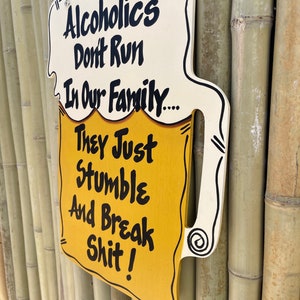 Alcoholics
Don't Run
In Our Family....
They Just
Stumble
And Break
Shit!